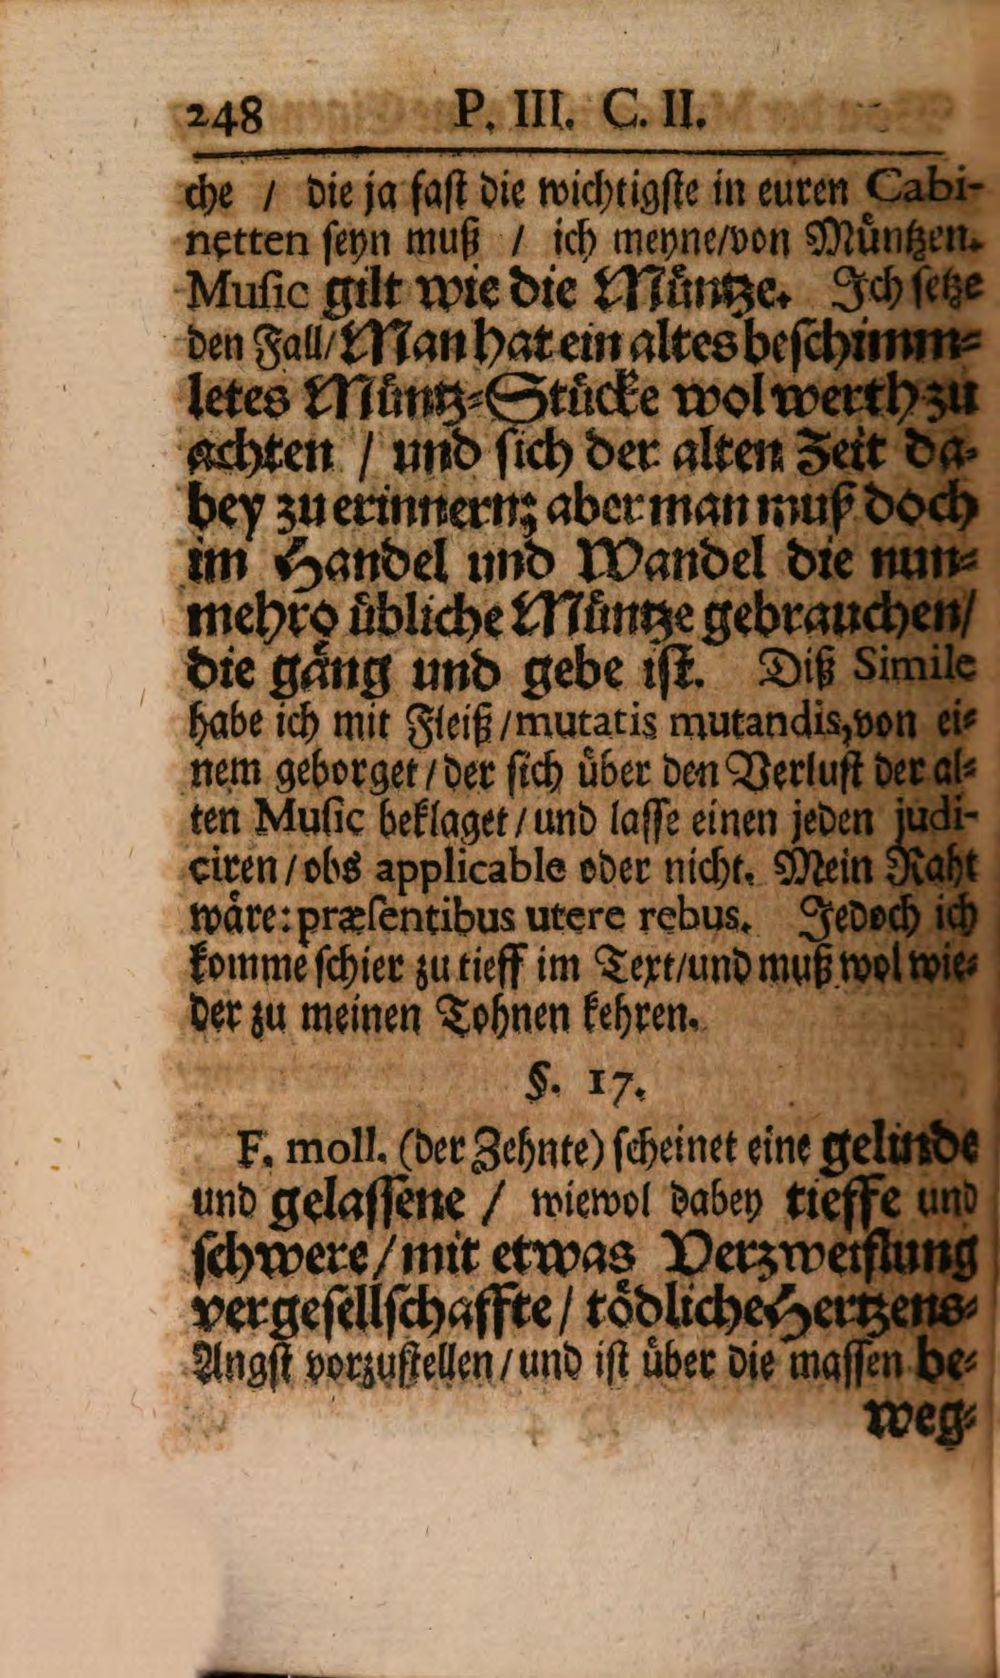 248 P. III. C. II.
che / die ja fast die wichtigste in euren Cabi-
netten seyn muß / ich meyne/von Müntzen.
Music gilt wie die Müntze. Ich setze
den Fall/Man hat ein altes beschimm-
letes Müntz-Stücke wol werth zu
achten / und sich der alten Zeit da-
bey zu erinnern; aber man muß doch
im Handel und Wandel die nun-
mehro übliche Müntze gebrauchen/
die gäng und gebe ist. Diß Simile
habe ich mit Fleiß/mutatis mutandis, von ei-
nem geborget/der sich über den Verlust der al-
ten Music beklaget/und lasse einen jeden judi-
ciren/obs applicable oder nicht. Mein Raht
wäre: præsentibus utere rebus. Jedoch ich
komme schier zu tieff im Text/und muß wol wie-
der zu meinen Tohnen kehren.
§. 17.
F. moll. (der Zehnte) scheinet eine gelinde
und gelassene / wiewol dabey tieffe und
schwere/mit etwas Verzweiflung
vergesellschaffte/tödliche Hertzens-
Angst vorzustellen/und ist über die massen be-
weg-